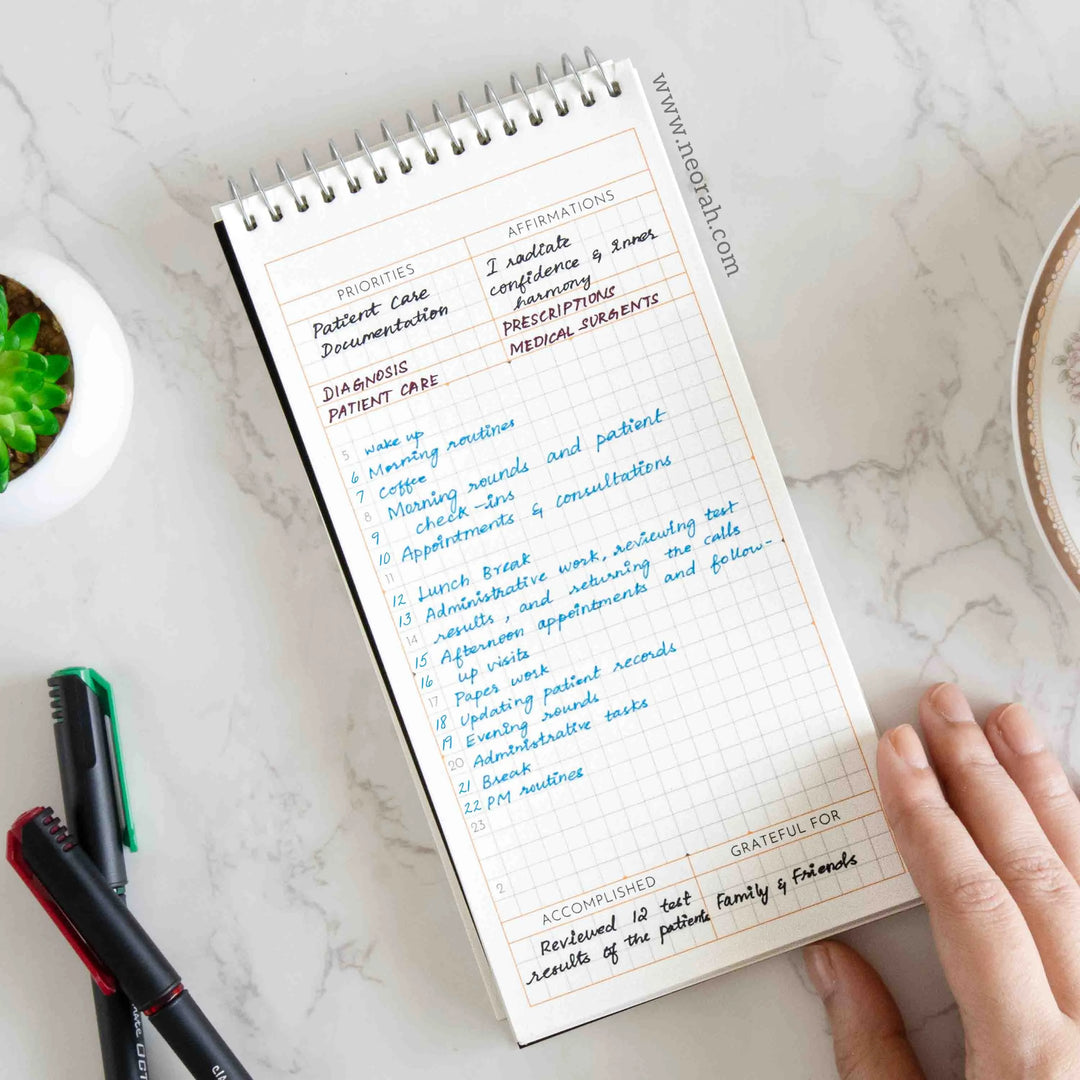 www.neorah.com
PRIORITIES
AFFIRMATIONS
Patient Care
Documentation
I radiate
confidence & inner
harmony
DIAGNOSIS
PRESCRIPTIONS
PATIENT CARE
MEDICAL SURGENTS
5 wake up
6 Morning routines
7 Coffee
8 Morning rounds and patient
9 check-ins
10 Appointments & consultations
11
12 Lunch Break
13 Administrative work, reviewing test
14 results, and returning the calls
15 Afternoon appointments and follow-
16 up visits
17 Paper work
18 Updating patient records
19 Evening rounds
20 Administrative tasks
21 Break
22 PM routines
23
2
ACCOMPLISHED
GRATEFUL FOR
Reviewed 12 test
results of the patients
Family & Friends